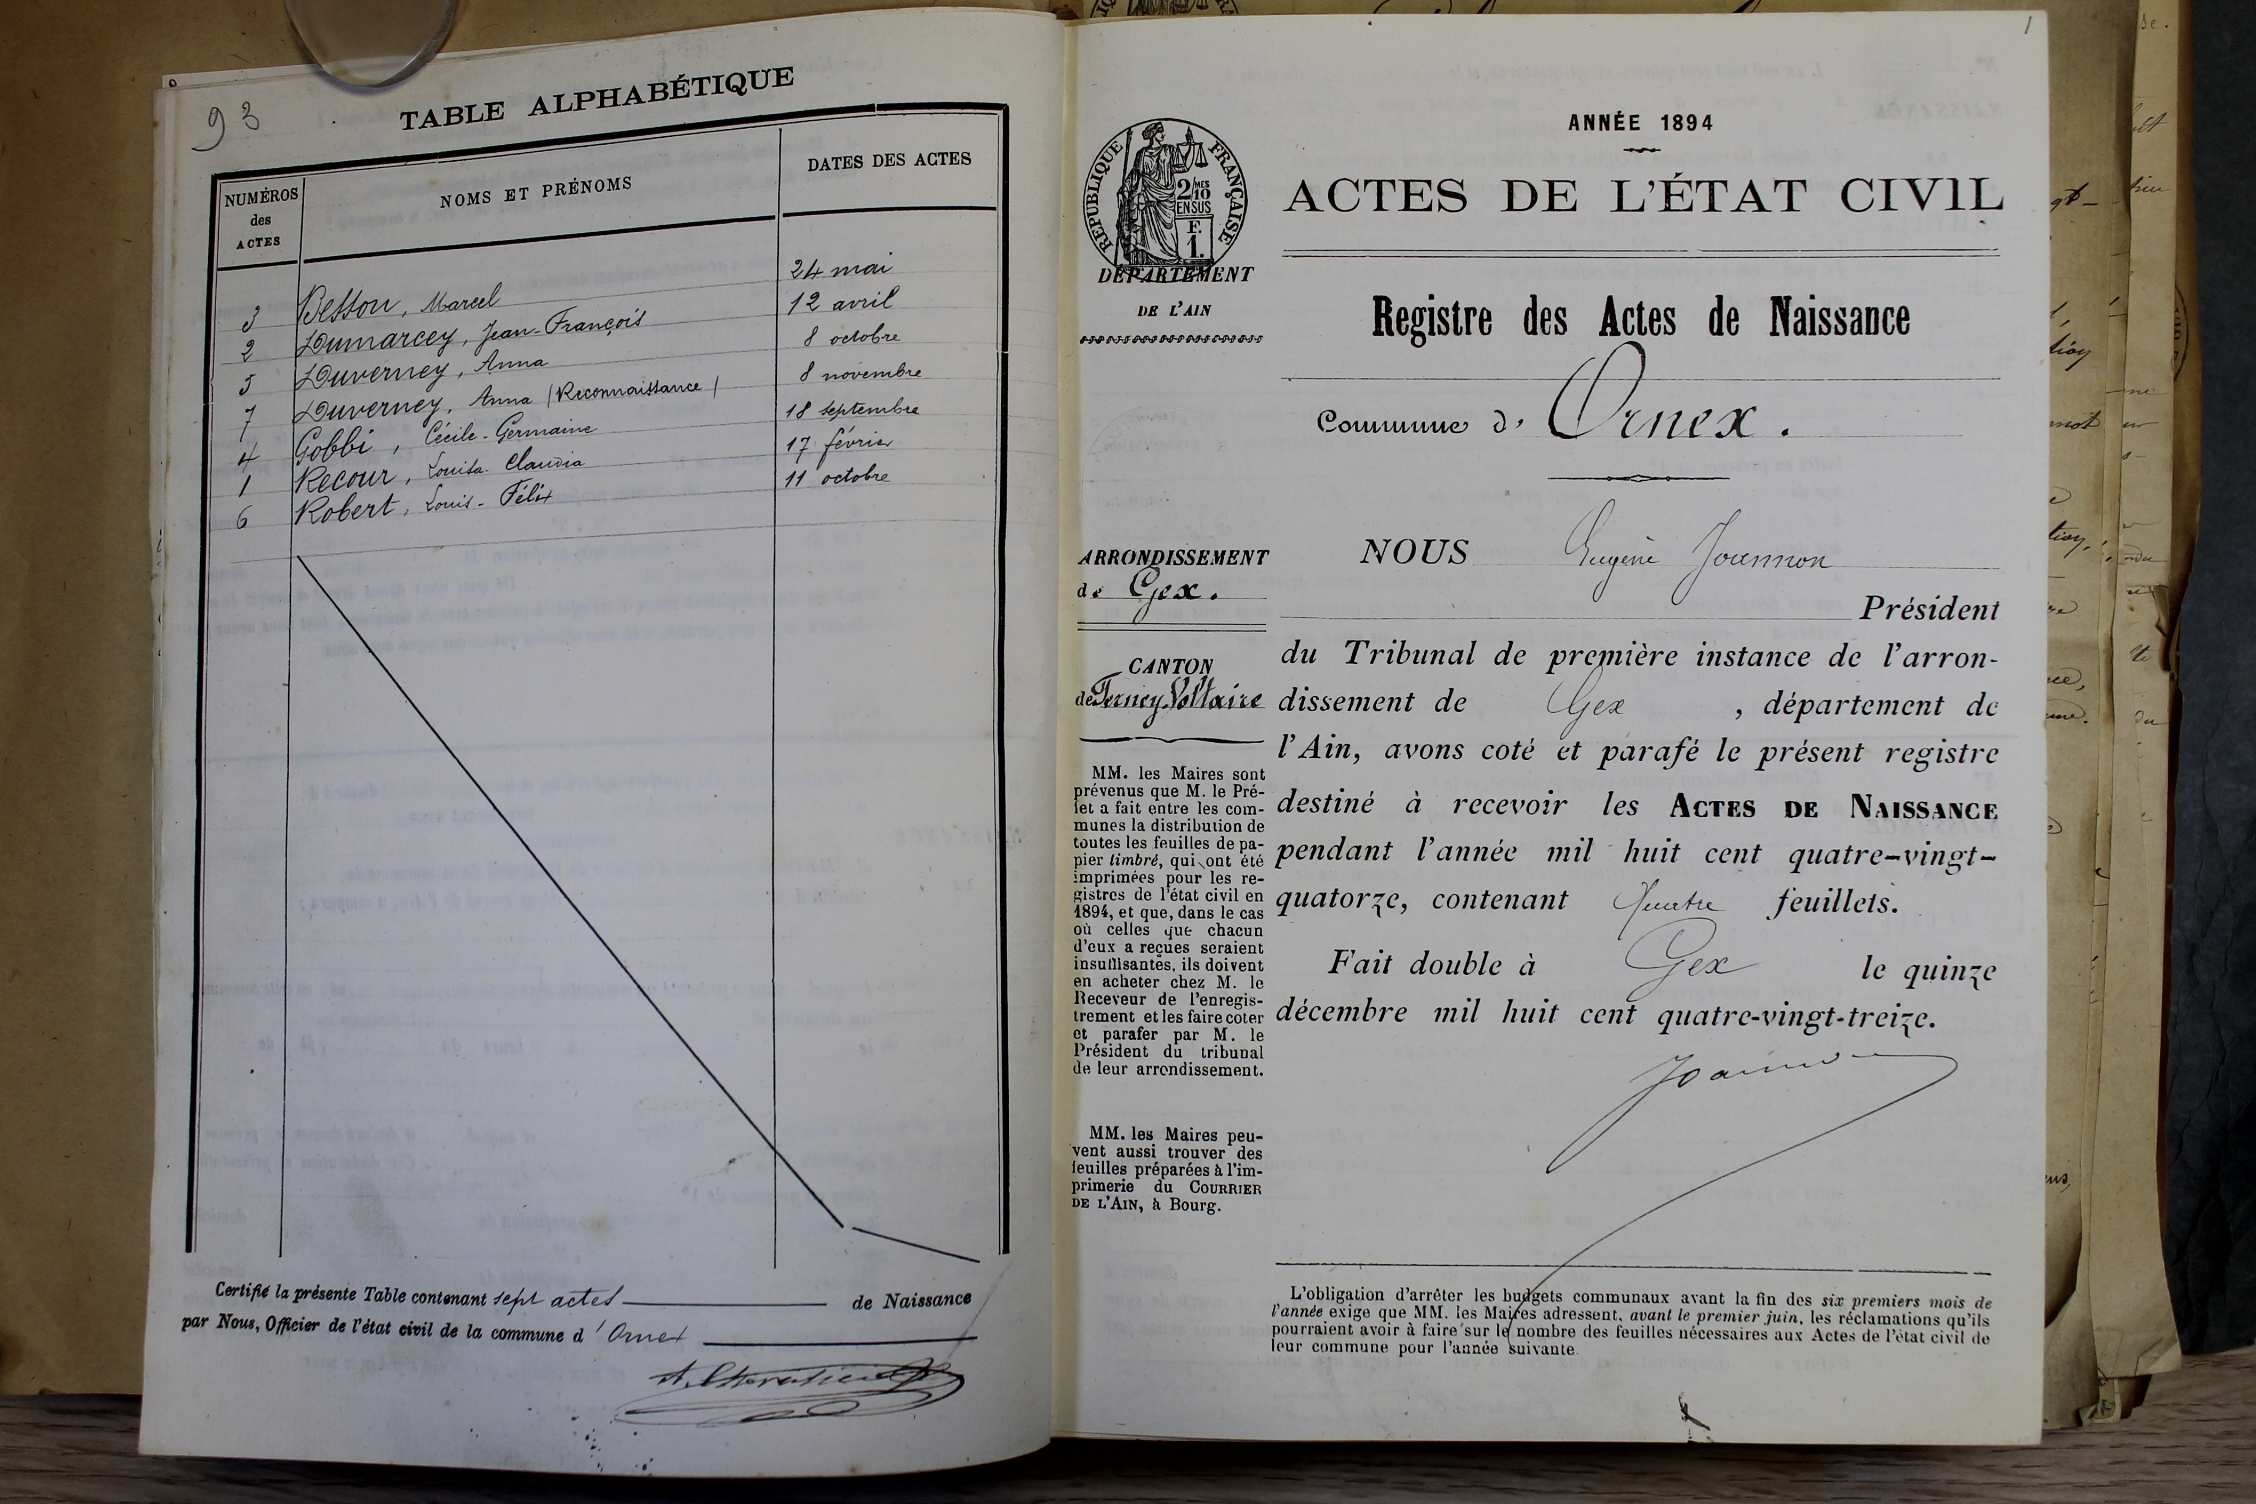 93
TABLE ALPHABÉTIQUE
NUMÉROS
des
ACTES
NOMS ET PRÉNOMS
DATES DES ACTES
3 Besson, Marcel 24 mai
2 Dumarcey, Jean-François 12 avril
5 Duverney, Anna 8 octobre
7 Duverney, Anna (Reconnaissance) 8 novembre
4 Gobbi, Cécile-Germaine 18 septembre
1 Recour, Louisa Claudia 17 février
6 Robert, Louis-Félix 11 octobre
Certifié la présente Table contenant sept actes de Naissance
par Nous, Officier de l'état civil de la commune d'Ornex
1
RÉPUBLIQUE FRANÇAISE
2/10 MES
EN SUS
F.
1.
DÉPARTEMENT
DE L'AIN
ANNÉE 1894
ACTES DE L'ÉTAT CIVIL
Registre des Actes de Naissance
Commune d'Ornex.
ARRONDISSEMENT
de Gex.
CANTON
de Ferney-Voltaire
MM. les Maires sont
prévenus que M. le Pré-
fet a fait entre les com-
munes la distribution de
toutes les feuilles de pa-
pier timbré, qui ont été
imprimées pour les re-
gistres de l'état civil en
1894, et que, dans le cas
où celles que chacun
d'eux a reçues seraient
insuffisantes, ils doivent
en acheter chez M. le
Receveur de l'enregis-
trement et les faire coter
et parafer par M. le
Président du tribunal
de leur arrondissement.
MM. les Maires peu-
vent aussi trouver des
feuilles préparées à l'im-
primerie du COURRIER
DE L'AIN, à Bourg.
NOUS Eugène Joannon
Président
du Tribunal de première instance de l'arron-
dissement de Gex, département de
l'Ain, avons coté et parafé le présent registre
destiné à recevoir les ACTES DE NAISSANCE
pendant l'année mil huit cent quatre-vingt-
quatorze, contenant Quatre feuillets.
Fait double à Gex le quinze
décembre mil huit cent quatre-vingt-treize.
Joannon
L'obligation d'arrêter les budgets communaux avant la fin des six premiers mois de
l'année exige que MM. les Maires adressent, avant le premier juin, les réclamations qu'ils
pourraient avoir à faire sur le nombre des feuilles nécessaires aux Actes de l'état civil de
leur commune pour l'année suivante.